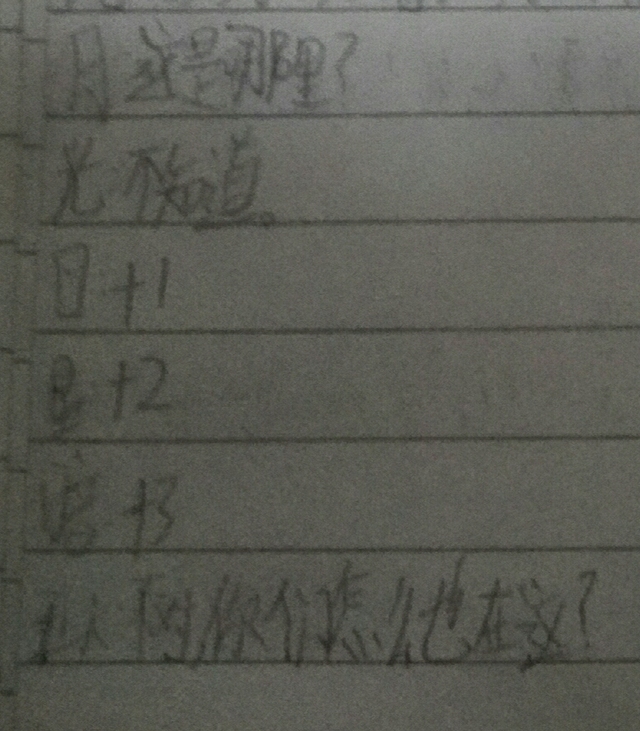 月 这是哪里?
光 不知道。
日 +1
星 +2
+3
你们怎么也在这?